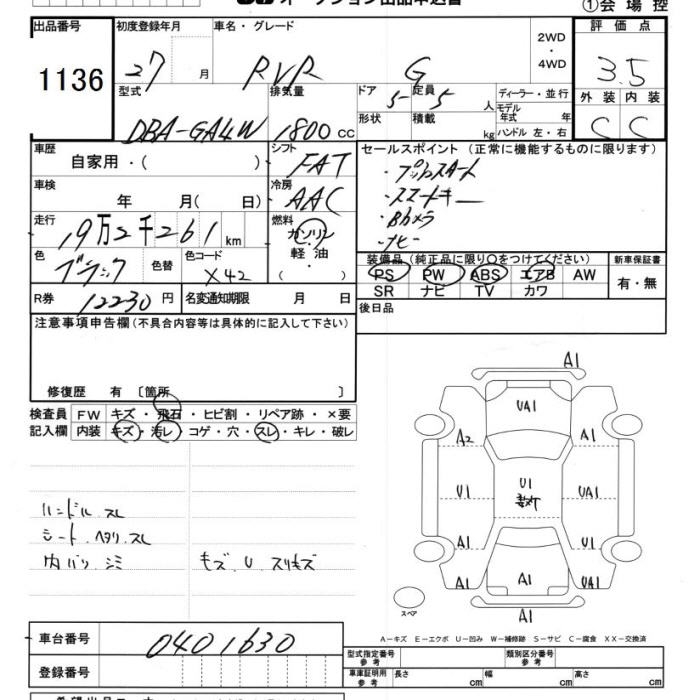 オークション出品申込書
①会場控
出品番号 初度登録年月 車名・グレード 2WD・4WD 評価点
1136 27 月 RVR G 3.5
型式 排気量 ドア 定員 ディーラー・並行 外装 内装
DBA-GA4W 1800 cc 5 5 人 モデル年式 年 C C
形状 積載 kg ハンドル 左・右
車歴 自家用・( ) シフト FAT セールスポイント (正常に機能するものに限ります)
・プッシュスタート
車検 年 月( 日) 冷房 AAC ・スマートキー
・Bカメラ
走行 19万2千261km 燃料 ガソリン 軽油 ・ ・ナビー
色 ブラック 色替 色コード X42 装備品 (純正品に限り○をつけてください) 新車保証書
PS PW ABS エアB AW 有・無
SR ナビ TV カワ
R券 12230円 名変通知期限 月 日 後日品
注意事項申告欄(不具合内容等は具体的に記入して下さい)
修復歴 有 〔箇所 〕
検査員 FW キズ・飛石・ヒビ割・リペア跡・×要
記入欄 内装 キズ・汚レ・コゲ・穴・スレ・キレ・破レ
ハンドル.スレ
シート.ヘタリ.スレ
内バリ.シミ キズ.U.スリキズ
A1
UA1
A2 A1
U1 U1 UA1
A1 U1
A1 A1 UA1
スペア A1
A−キズ E−エクボ U−凹み W−補修跡 S−サビ C−腐食 XX−交換済
車台番号 0401630
登録番号
型式指定番号 参考 類別区分番号 参考
車庫証明用 参考 長さ cm 幅 cm 高さ cm